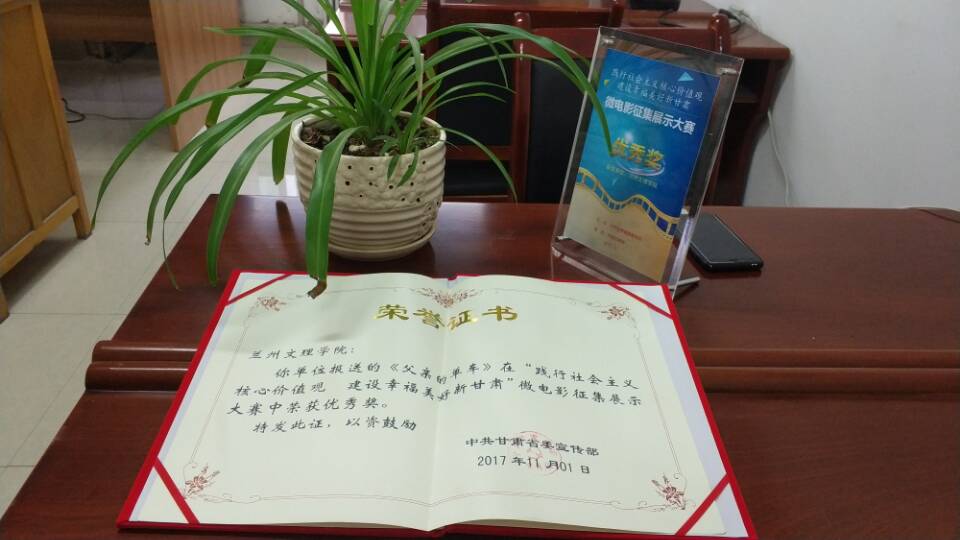 践行社会主义核心价值观
建设幸福美好新甘肃
微电影征集展示大赛
优秀奖
荣誉证书
兰州文理学院：
你单位报送的《父亲的单车》在“践行社会主义
核心价值观 建设幸福美好新甘肃”微电影征集展示
大赛中荣获优秀奖。
特发此证，以资鼓励
中共甘肃省委宣传部
2017 年11 月01 日